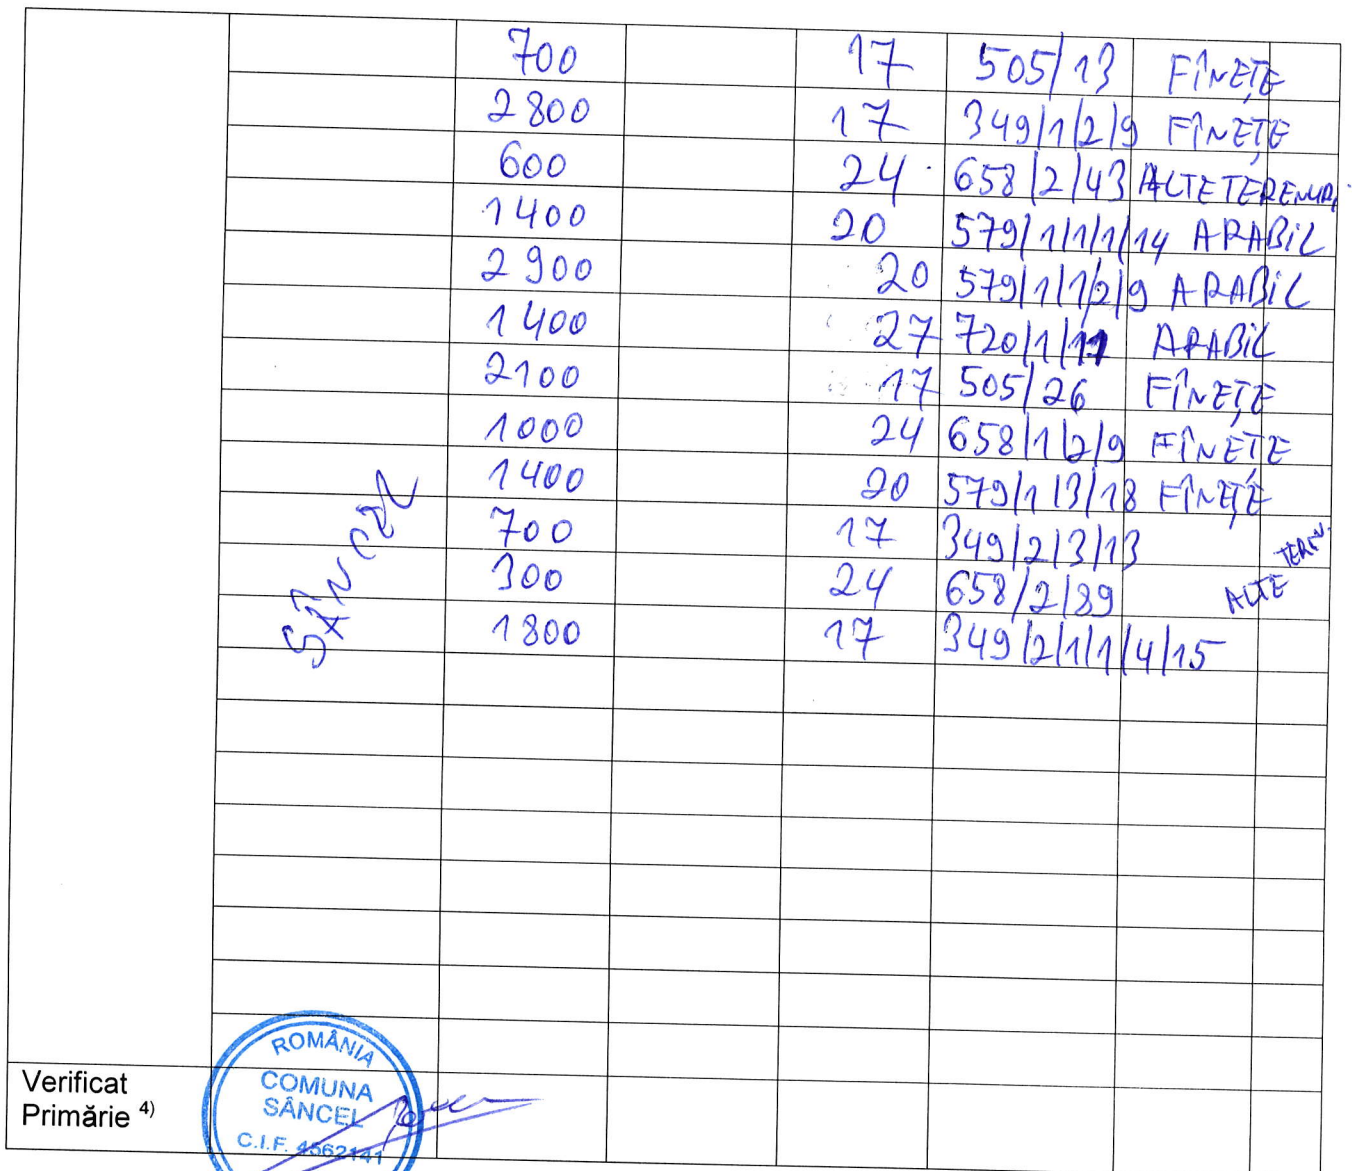 700 17 505/13 FÎNEȚE
2800 17 349/1/2/9 FÎNEȚE
600 24 658/2/43 ALTE TERENURI
1400 20 579/1/1/1/14 ARABIL
2900 20 579/1/1/2/9 ARABIL
1400 27 720/1/11 ARABIL
2100 17 505/26 FÎNEȚE
1000 24 658/1/2/9 FÎNEȚE
1400 20 579/1/3/18 FÎNEȚE
700 17 349/2/3/13
300 24 658/2/89 ALTE TEREN.
1800 17 349/2/1/1/4/15
SÂNCEL
ROMÂNIA
COMUNA
SÂNCEL
C.I.F. 4562141
Verificat
Primărie 4)